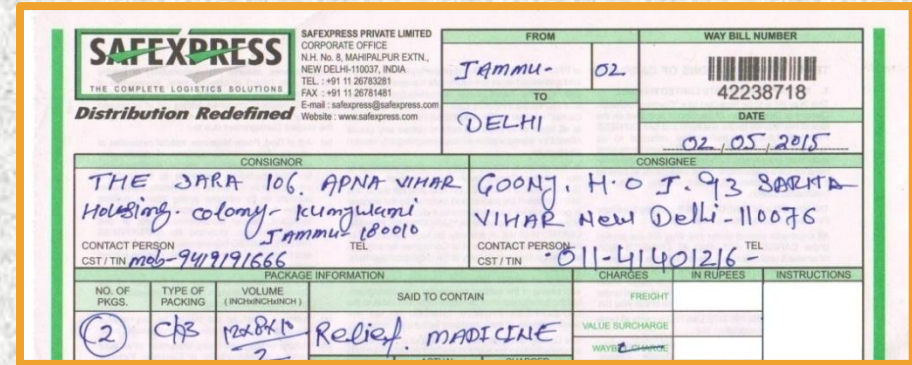 SAFEXPRESS
THE COMPLETE LOGISTICS SOLUTIONS
Distribution Redefined
SAFEXPRESS PRIVATE LIMITED
CORPORATE OFFICE
N.H. No. 8, MAHIPALPUR EXTN.,
NEW DELHI-110037, INDIA
TEL. : +91 11 26783281
FAX : +91 11 26781481
E-mail : safexpress@safexpress.com
Website : www.safexpress.com
FROM
JAMMU- 02
TO
DELHI
WAY BILL NUMBER
42238718
DATE
02,05,2015
CONSIGNOR
THE SARA 106. APNA VIHAR
Housing. colony- Kunjwani
JAMMU- 180010
CONTACT PERSON TEL
CST / TIN mob-9419191666
CONSIGNEE
GOONJ. H.O J.93 SARITA
VIHAR New Delhi-110076
CONTACT PERSON TEL
CST / TIN 011-41401216 -
PACKAGE INFORMATION
NO. OF PKGS.
TYPE OF PACKING
VOLUME
( INCHxINCHxINCH )
SAID TO CONTAIN
CHARGES
IN RUPEES
INSTRUCTIONS
2 C/B 12x8x10 Relief. MADICINE
2
FREIGHT
VALUE SURCHARGE
WAYBILL CHARGE
ACTUAL CHARGED